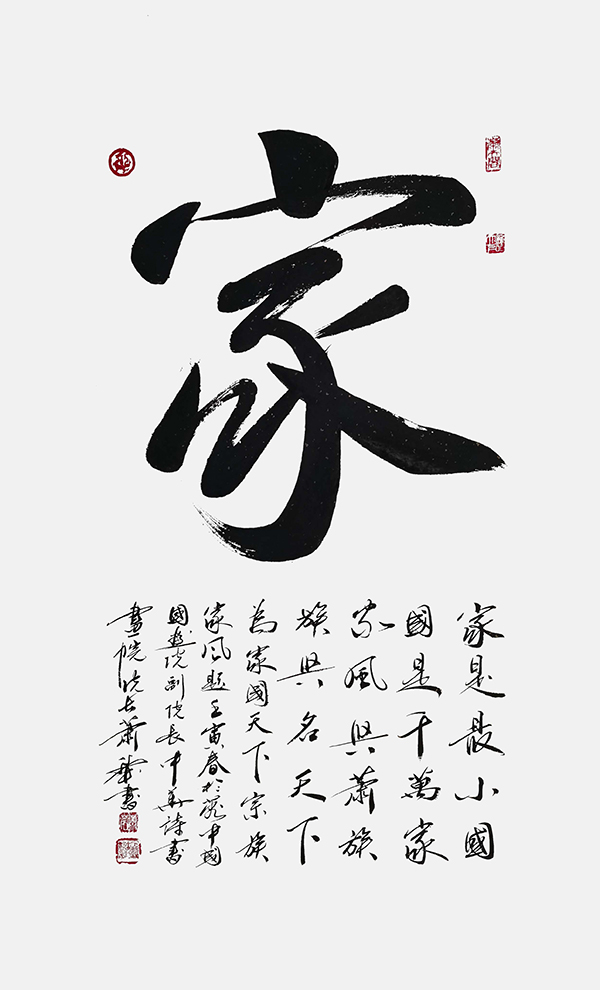 家
家是最小國
國是千萬家
家風興蕭族
族興名天下
為家國天下宗族
家風題壬寅春於中國
國院副院長中華詩書
畫院院長蕭書